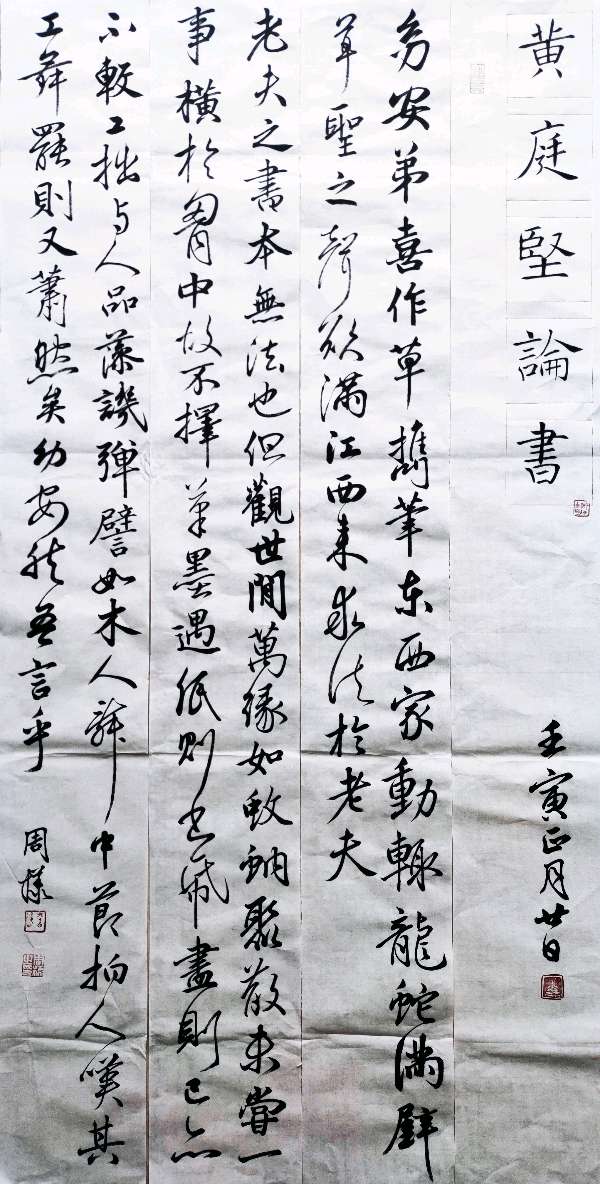 黄庭堅論書
壬寅正月廿日
幼安弟喜作草攜筆东西家動輒龍蛇滿壁
草聖之聲欲滿江西来求法於老夫
老夫之書本無法也但觀世間萬緣如蚊蚋聚散未嘗一
事橫於胷中故不擇筆墨遇紙則書紙盡則已亦
不較工拙与人品藻譏彈譬如木人舞中節拍人嘆其
工舞罷則又蕭然矣幼安然吾言乎
周樣